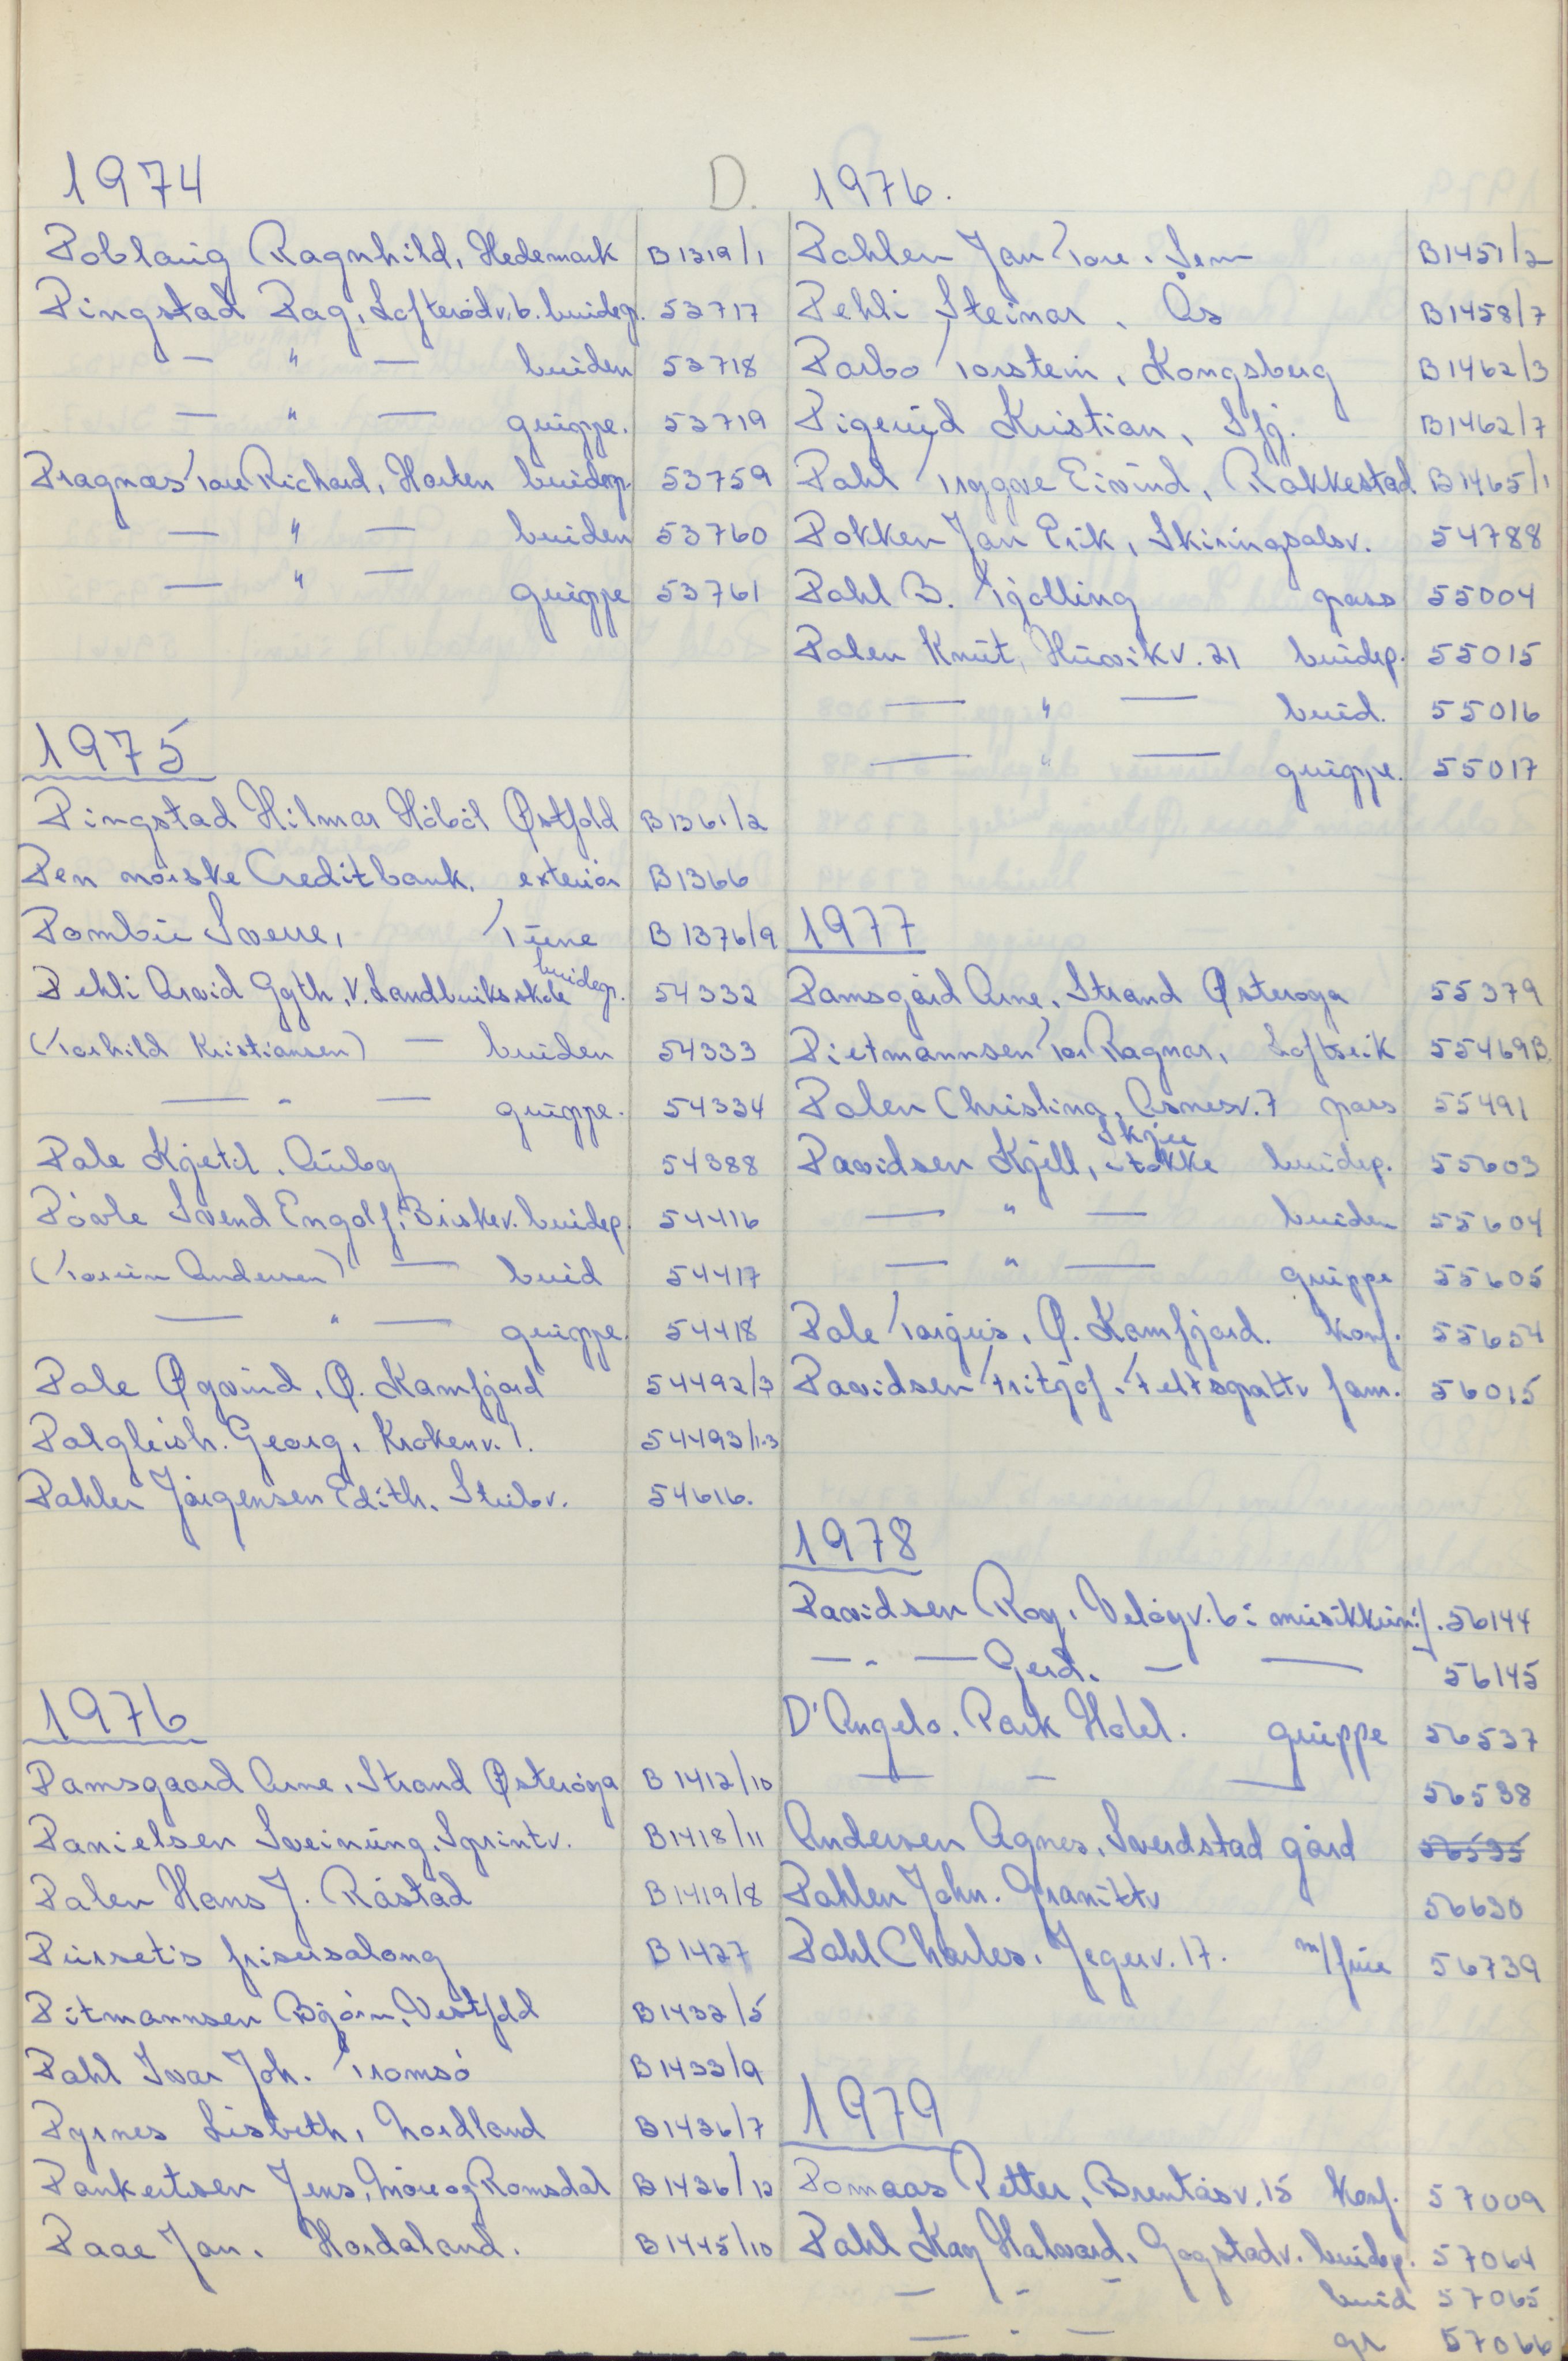 D.
1974
Doblaug Ragnhild, Hedemark B1319/1
Dingstad Dag, Lofterödv. 6. brudep. 53717
— " — bruden 53718
— " — gruppe. 53719
Dragnæs Tore Richard, Horten brudep. 53759
— " — bruden 53760
— " — gruppe 53761
1975
Dingstad Hilmar Hóból Østfold B1361/2
Den norske Creditbank, exteriör B1366
Dombu Sverre, B1376/9
Dehli Arvid Ggth, V. Landbruksskole brudep. 54332
(Torhild Kristiansen) — bruden 54333
— " — gruppe. 54334
Dale Kjetil. Aubg 54388
Dövle Svend Engolf, Biskev. brudep. 54416
(Torunn Andersen) — brud 54417
— " — gruppe. 54418
Dale Øyvind, Ø. Kamfjord 54492/3
Dalgleish. Georg, Krokenv. 1. 54493/1-3
Dahler Jörgensen Edith, Stubv. 54616.
1976
Damsgaard Arne, Strand Österöya B1412/10
Danielsen Sveinung, Sprintv. B1418/11
Dalen Hans J. Råstad B1419/8
Durset's frisersalong B1427
Ditmannsen Björn, Vestfold B1432/5
Dahl Ivar Joh. Tromsö B1433/9
Dyrnes Lisbeth, Nordland B1436/7
Dankertsen Jens, Möre og Romsdal B1436/12
Daae Jan. Hordaland. B1445/10
1976.
Dahlen Jan Tore. Sem B1451/2
Dehli Steinar, Ås B1458/7
Darbo Torstein, Kongsberg B1462/3
Digerud Kristian, Sfj. B1462/7
Dahl Tryggve Eivind, Rakkestad B1465/1
Dokken Jan Erik, Skiringsalsv. 54788
Dahl B. Tjölling pass 55004
Dalen Knut, Huvikv. 21 brudep. 55015
— " — brud. 55016
— " — gruppe. 55017
1977
Damsgård Arne, Strand Österøya 55379
Dietmannsen Tor Ragnar, Loftseik 55469B
Dalen Christina, Asnesv. 7 pass 55491
Davidsen Kjell, Skjee Stokke brudep. 55603
— " — bruden 55604
— " — gruppe 55605
Dale Torgus, Ø. Kamfjord. konf. 55654
Davidsen Fritjof, Feltspattv fam. 56015
1978
Davidsen Roy, Velögv. 6: musikkuni:f. 56144
— " — Gerd. — — 56145
D'Angelo. Park Hotel. gruppe 56537
— — — 56538
Andersen Agnes, Sverdstad gård 56535
Dahlen John. Granittv 56630
Dahl Charles, Jegerv. 17. m/frue 56739
1979
Domaas Petter, Brentåsv. 15 konf. 57009
Dahl Kay Halvard, Gogstadv. brudep. 57064
— " — brud 57065
— " — gr 57066